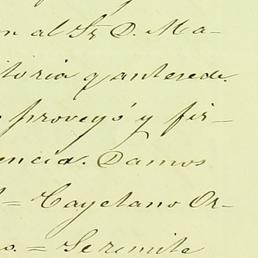 on al Sr. D. Ma-
itoria q antesede.
proveyó y fir-
encia. Damos
= Cayetano Or-
o. = Se remite